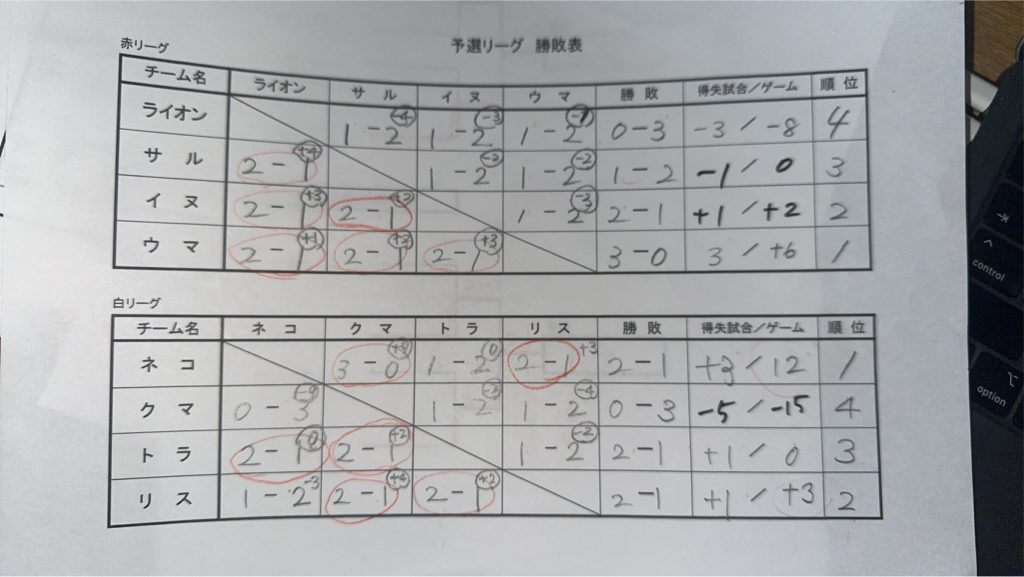 予選リーグ 勝敗表
赤リーグ
チーム名 ライオン サル イヌ ウマ 勝敗 得失試合/ゲーム 順位
ライオン 1-2 -4 1-2 -3 1-2 -1 0-3 -3/-8 4
サル 2-1 +4 1-2 -2 1-2 -2 1-2 -1/0 3
イヌ 2-1 +3 2-1 +2 1-2 -3 2-1 +1/+2 2
ウマ 2-1 +1 2-1 2-1 +3 3-0 3/+6 1
白リーグ
チーム名 ネコ クマ トラ リス 勝敗 得失試合/ゲーム 順位
ネコ 3-0 +9 1-2 0 2-1 +3 2-1 +3/12 1
クマ 0-3 -9 1-2 -2 1-2 -4 0-3 -5/-15 4
トラ 2-1 0 2-1 +2 1-2 -2 2-1 +1/0 3
リス 1-2 -3 2-1 +4 2-1 +2 2-1 +1/+3 2
control
option